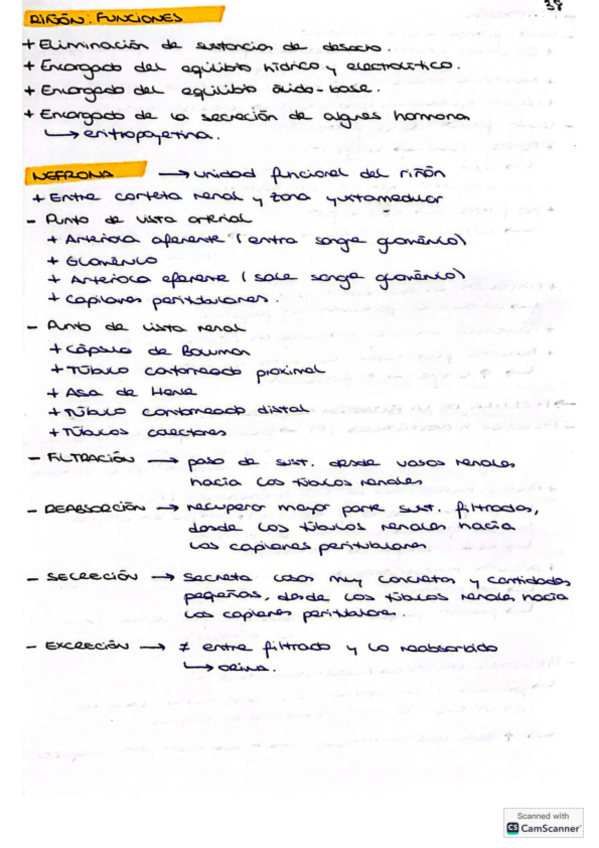 38
RIÑÓN: FUNCIONES
+ Eliminación de sustancias de desecho.
+ Encargado del equilibrio hídrico y electrolítico.
+ Encargado del equilibrio ácido-base.
+ Encargado de la secreción de algunas hormonas
↳ eritropoyetina.
NEFRONA → unidad funcional del riñón
+ Entre corteza renal y zona yuxtamedular
- Punto de vista arterial
+ Arteriola aferente (entra sangre glomérulo)
+ Glomérulo
+ Arteriola eferente (sale sangre glomérulo)
+ Capilares peritubulares.
- Punto de vista renal
+ Cápsula de Bowman
+ Túbulo contorneado proximal
+ Asa de Henle
+ Túbulo contorneado distal
+ Túbulos colectores
- FILTRACIÓN → paso de sust. desde vasos renales
hacia los túbulos renales
- REABSORCIÓN → recupera mayor parte sust. filtradas,
desde los túbulos renales hacia
los capilares peritubulares
- SECRECIÓN → secreta cosas muy concretas y cantidades
pequeñas, desde los túbulos renales hacia
los capilares peritubulares.
- EXCRECIÓN → ≠ entre filtrado y lo reabsorbido
↳ orina.
Scanned with
CS CamScanner